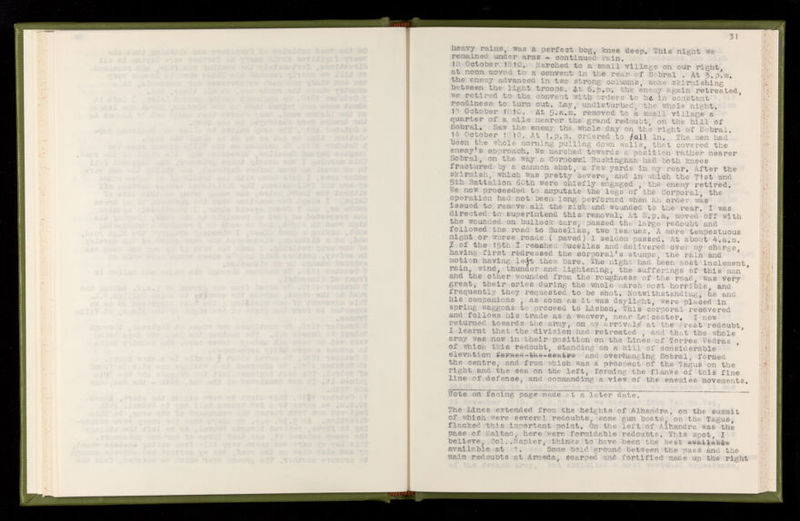 31
heavy rains, was a perfect bog, knee deep. This night we
remained under arms - continued rain.
12 October 1810. Marched to a small village on our right,
at noon moved to a convent in the rear of Sobral . At 3.p.m.
the enemy advanced in two strong columns, some skirmishing
between the light troops. At 6.p.m. the enemy again retreated,
we retired to the convent with orders to be in constant
readiness to turn out. Lay, undisturbed, the whole night.
13 October 1810. At 9.a.m. removed to a small village a
quarter of a mile nearer the grand redoubt, on the hill of
Sobral. Saw the enemy the whole day on the right of Sobral.
14 October 1810. At 1.p.m. ordered to fall in. The men had
been the whole morning pulling down walls, that covered the
enemy's approach. We marched towards a position rather nearer
Sobral, on the way a Corporal Buckingham had both knees
fractured by a cannon shot, a few yards in my rear. After the
skirmish, which was pretty severe, and in which the 71st and
5th Battalion 60th were chiefly engaged , the enemy retired.
We now proceeded to amputate the legs of the Corporal, the
operation had not been long performed when an order was
issued to remove all the sick and wounded to the rear. I was
directed to superintend this removal. At 8.p.m. moved off with
the wounded on bullock cars, passed the large redoubt and
followed the road to Bucellas, two leagues. A more tempestuous
night or worse roads ( paved) I seldom passed. At about 4.a.m.
of the 15th I reached Bucellas and delivered over my charge,
having first redressed the corporal's stumps, the rain and
motion having left them bare. The night had been most inclement,
rain, wind, thunder and lightening, the sufferings of this man
and the other wounded from the roughness of the road, was very
great, their cries during the whole march most horrible, and
frequently they requested to be shot. Notwithstanding, he and
his companions , as soon as it was daylight, were placed in
spring waggons to proceed to Lisbon. This corporal recovered
and follows his trade as a weaver, near Leicester. I now
returned towards the army, on my arrival at the great redoubt,
I learnt that the division had retreated , and that the whole
army was now in their position on the Lines of Torres Vedras ,
of which this redoubt, standing on a hill of considerable
elevation formed the centre and overhanging Sobral, formed
the centre, and from which was a prospect of the Tagus on the
right and the sea on the left, forming the flanks of this fine
line of defence, and commanding a view of the enemies movements.
Note on facing page made at a later date.
The Lines extended from the heights of Alhandra, on the summit
of which were several redoubts, some gun boats, on the Tagus,
flanked this important point. On the left of Alhandra was the
pass of Maltao, here were formidable redoubts. This spot, I
believe, Col. Napier, thinks to have been the best available
available at ?. Some bold ground between the pass and the
main redoubts at Arneda, scarped and fortified made up the right